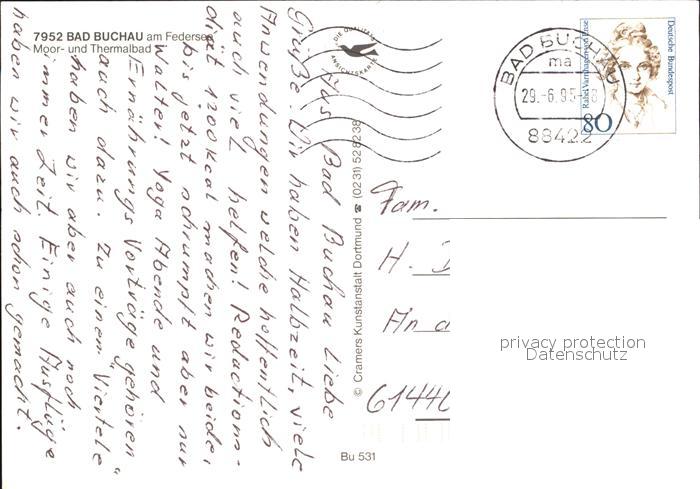 7952 BAD BUCHAU am Federsee
Moor- und Thermalbad
DIE QUALITÄTS
ANSICHTSKARTE
BAD BUCHAU
ma
29.-6.95-18
88422
Deutsche Bundespost
Rahel Varnhagen von Ense
80
Aus Bad Buchau Liebe
Grüße. Wir haben Halbzeit, viele
Anwendungen welche hoffentlich
auch viel helfen! Reductions-
diät 1200kcal machen wir beide,
bis jetzt schrumpft aber nur
Walter! Yoga Abende und
Ernährungs Vorträge gehören
auch dazu. Zu einem "Viertele"
haben wir aber auch noch
immer Zeit. Einige Ausflüge
haben wir auch schon gemacht.
© Cramers Kunstanstalt Dortmund ☎ (0231) 528238
Fam.
H.
An
61440
privacy protection
Datenschutz
Bu 531